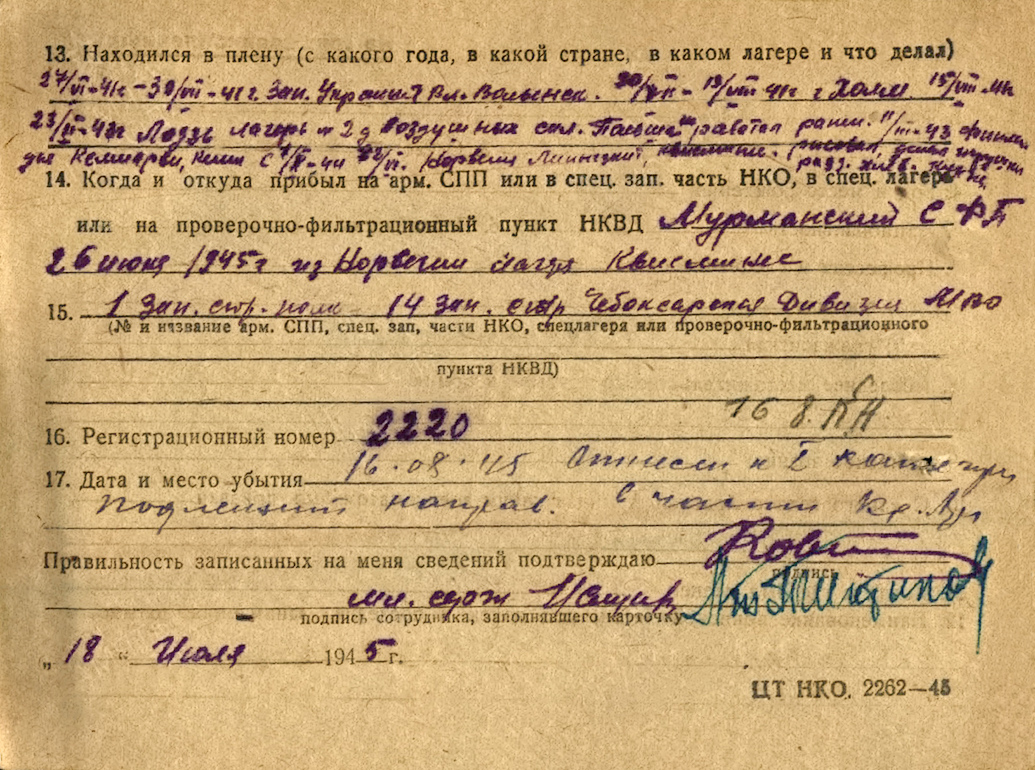 13. Находился в плену (с какого года, в какой стране, в каком лагере и что делал)
27/VI-41г - 30/VII-41г. Зап. Украина Вл. Волынск. 30/VII - 13/VIII 41г г Холм 15/VIII
23/II-43г Лодзь лагерь № 2 д воздушных сил. Польша не работал ранен. 11/III-43
Кемиярви, С Норвегия рисовал,
14. Когда и откуда прибыл на арм. СПП или в спец. зап. часть НКО, в спец. лагерь
или на проверочно-фильтрационный пункт НКВД Мурманский СФП
26 июня 1945г из Норвегии лагеря
15. 1 Зап. стр. полк 14 Зап. стр Чебоксарская Дивизия МВО
(№ и название арм. СПП, спец. зап, части НКО, спецлагеря или проверочно-фильтрационного
пункта НКВД)
16. Регистрационный номер 2220
16 8.
17. Дата и место убытия 16.08.45 Отнесен к I категории
подлежащий направ. в части Кр. Арм
Правильность записанных на меня сведений подтверждаю
подпись
мл. серж
подпись сотрудника, заполнявшего карточку
„18" Июля 1945г.
ЦТ НКО. 2262—45